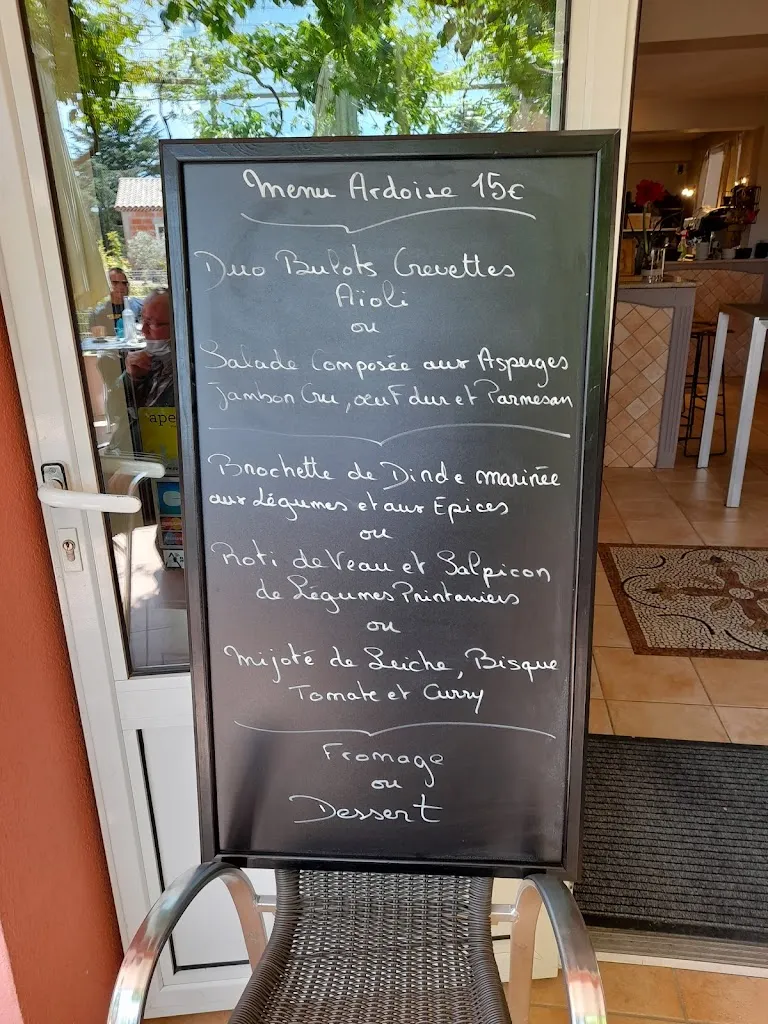 Menu Ardoise 15€
Duo Bulots Crevettes
Aïoli
ou
Salade Composée aux Asperges
Jambon Cru, œuf dur et Parmesan
Brochette de Dinde marinée
aux Légumes et aux Épices
ou
Roti de Veau et Salpicon
de Légumes Printaniers
ou
Mijoté de Seiche, Bisque
Tomate et Curry
Fromage
ou
Dessert
ape